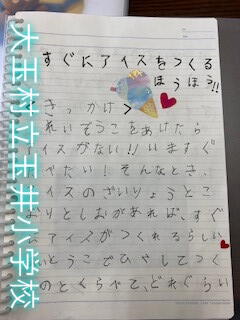 すぐにアイスをつくる
ほうほう!!
きっかけ>
れいぞうこをあけたら
イスがない!!いますぐ
べたい!そんなとき、
イスのざいりょうとこ
おりとしおがあれば、すぐ
にアイスがつくれるらしい
とうこでひやしてつく
のとくらべて、どれぐらい
大玉村立玉井小学校